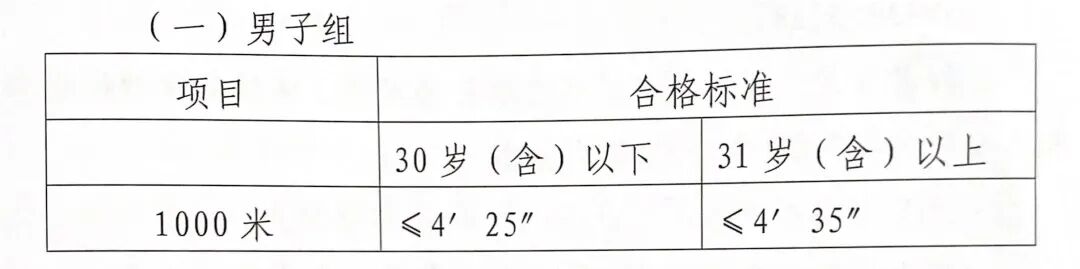 （一）男子组
项目 合格标准
30岁（含）以下 31岁（含）以上
1000米 ≤4′25″ ≤4′35″